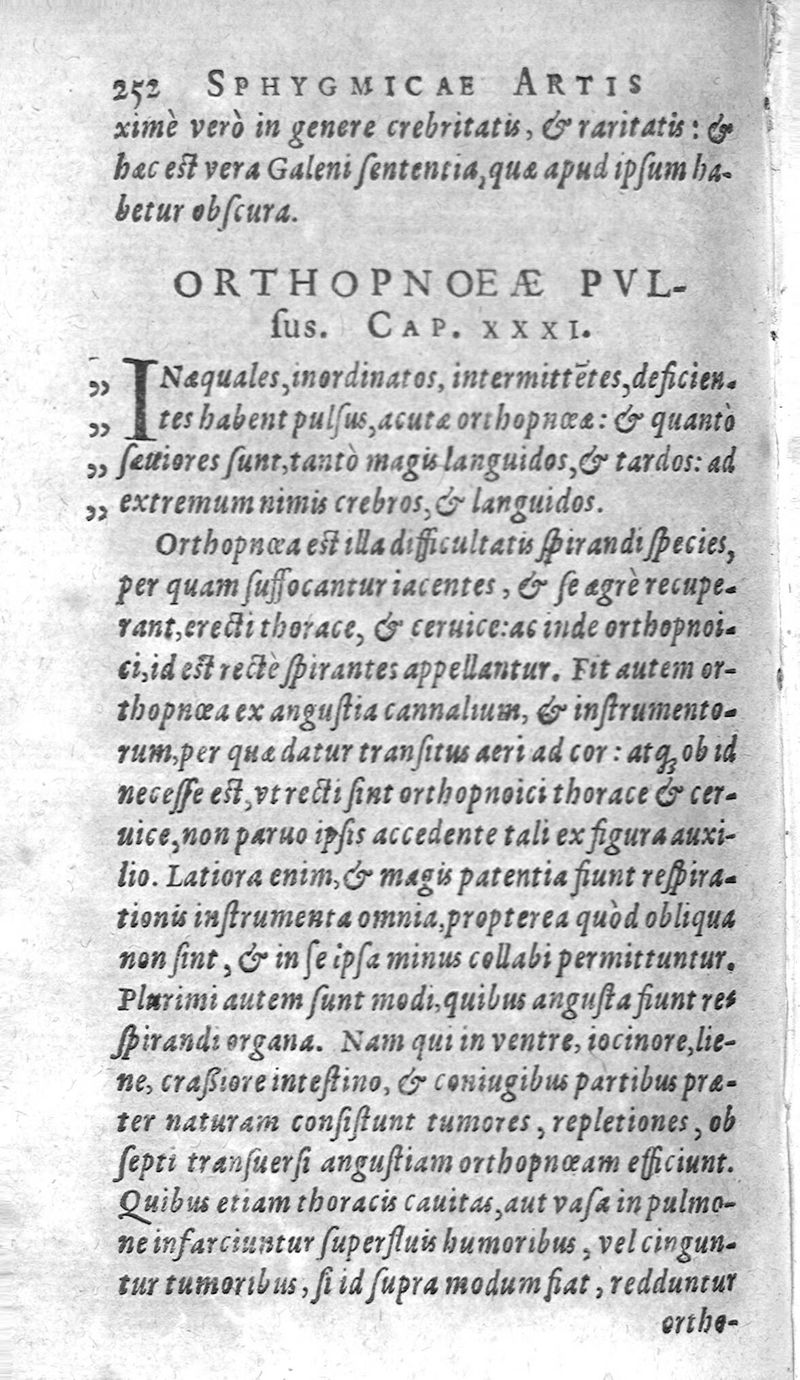 252 SPHYGMICAE ARTIS
ximè verò in genere crebritatis, & raritatis: &
hæc est vera Galeni sententia, quæ apud ipsum ha-
betur obscura.
ORTHOPNOEÆ PVL-
sus. CAP. XXXI.
„ INæquales, inordinatos, intermittētes, deficien-
„ tes habent pulsus, acutæ orthopnœæ: & quantò
„ sæuiores sunt, tantò magis languidos, & tardos: ad
„ extremum nimis crebros, & languidos.
Orthopnœa est illa difficultatis spirandi species,
per quam suffocantur iacentes, & se ægrè recupe-
rant, erecti thorace, & ceruice: ac inde orthopnoi-
ci, id est rectè spirantes appellantur. Fit autem or-
thopnœa ex angustia cannalium, & instrumento-
rum, per quæ datur transitus aeri ad cor: atq; ob id
necesse est, vt recti sint orthopnoici thorace & cer-
uice, non paruo ipsis accedente tali ex figura auxi-
lio. Latiora enim, & magis patentia fiunt respira-
tionis instrumenta omnia, propterea quòd obliqua
non sint, & in se ipsa minus collabi permittuntur.
Plurimi autem sunt modi, quibus angusta fiunt re-
spirandi organa. Nam qui in ventre, iocinore, lie-
ne, craßiore intestino, & coniugibus partibus præ-
ter naturam consistunt tumores, repletiones, ob
septi transuersi angustiam orthopnœam efficiunt.
Quibus etiam thoracis cauitas, aut vasa in pulmo-
ne infarciuntur superfluis humoribus, vel cingun-
tur tumoribus, si id supra modum fiat, redduntur
ortho-